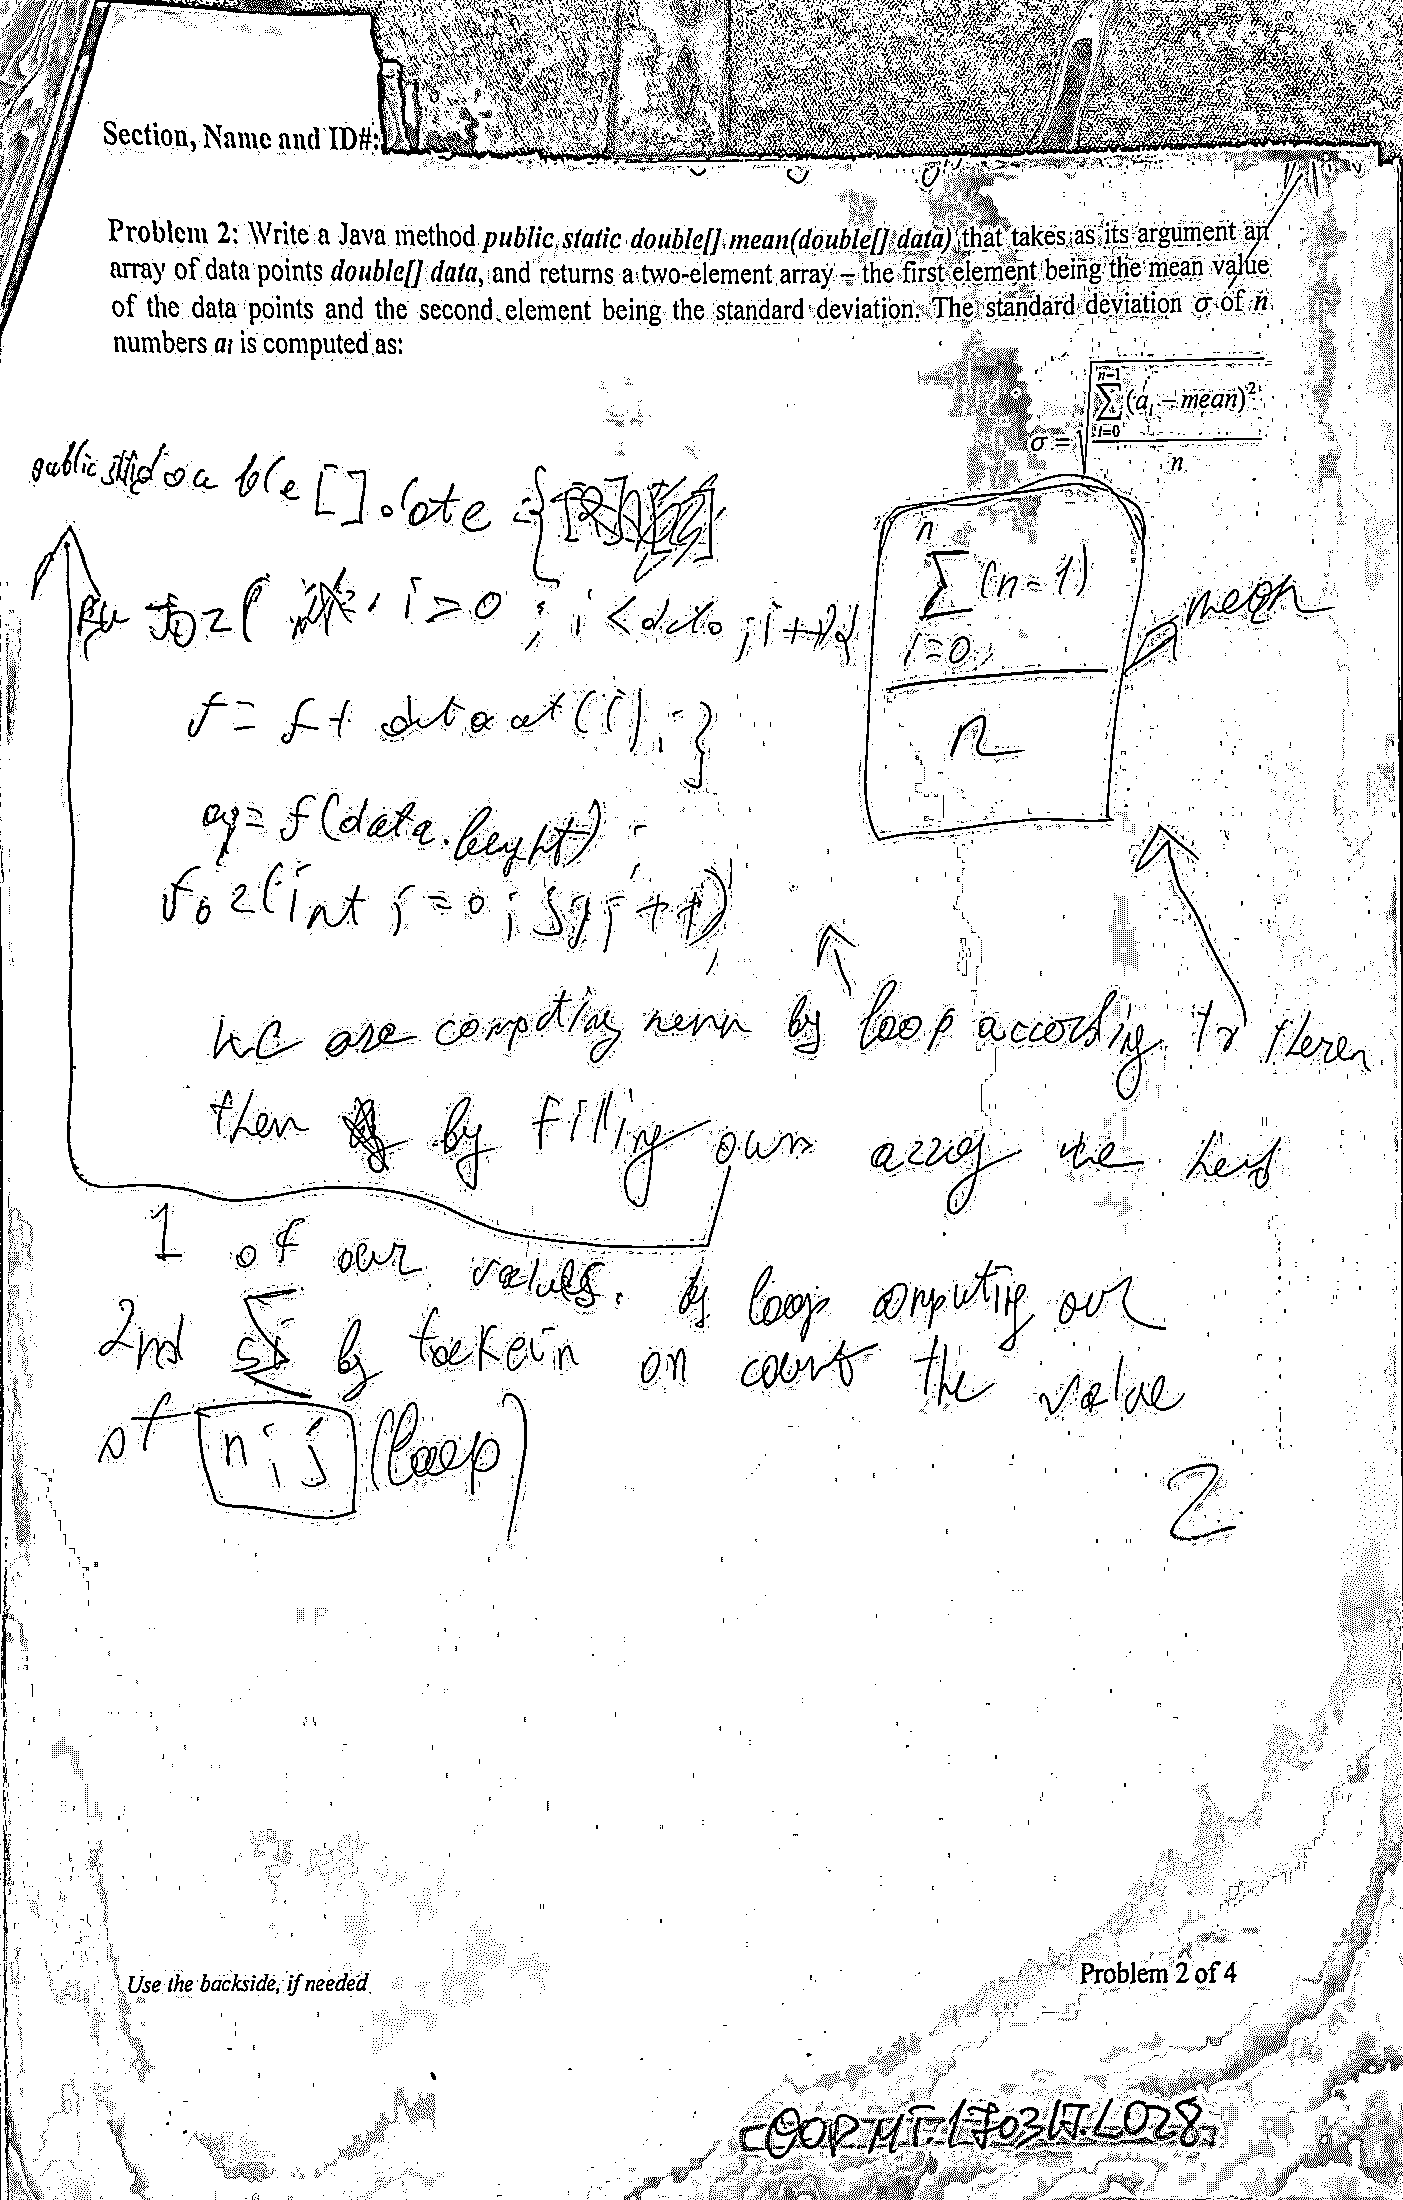 Section, Name and ID#:
Problem 2: Write a Java method public static double[] mean(double[] data) that takes as its argument an
array of data points double[] data, and returns a two-element array – the first element being the mean value
of the data points and the second element being the standard deviation. The standard deviation σ of n
numbers ai is computed as:
σ = √(∑(ai – mean)² / n) n-1 i=0
public double[] date = {
for( i=0 ; i < data ; i++){
n
∑ (n-1)
i=0
n
mean
f = f + data at(i) ; }
ag = f(data.lenght) ;
for(int j=0 ; j++)
we are computing mean by loop according to
then by filling own array the
1 of our values. by loop computing our
2nd ∑ by tackein on count the value
of n i j (loop)
2
Use the backside, if needed
Problem 2 of 4
OOP.MT.170317.L028